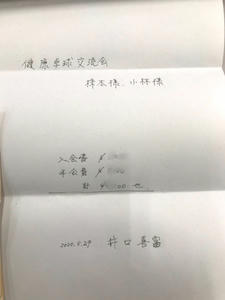 健康卓球交流会
橋本様、小林様
入会費 ¥
年会費 ¥
計 ¥ 00 也
2020.5.29 井口喜富